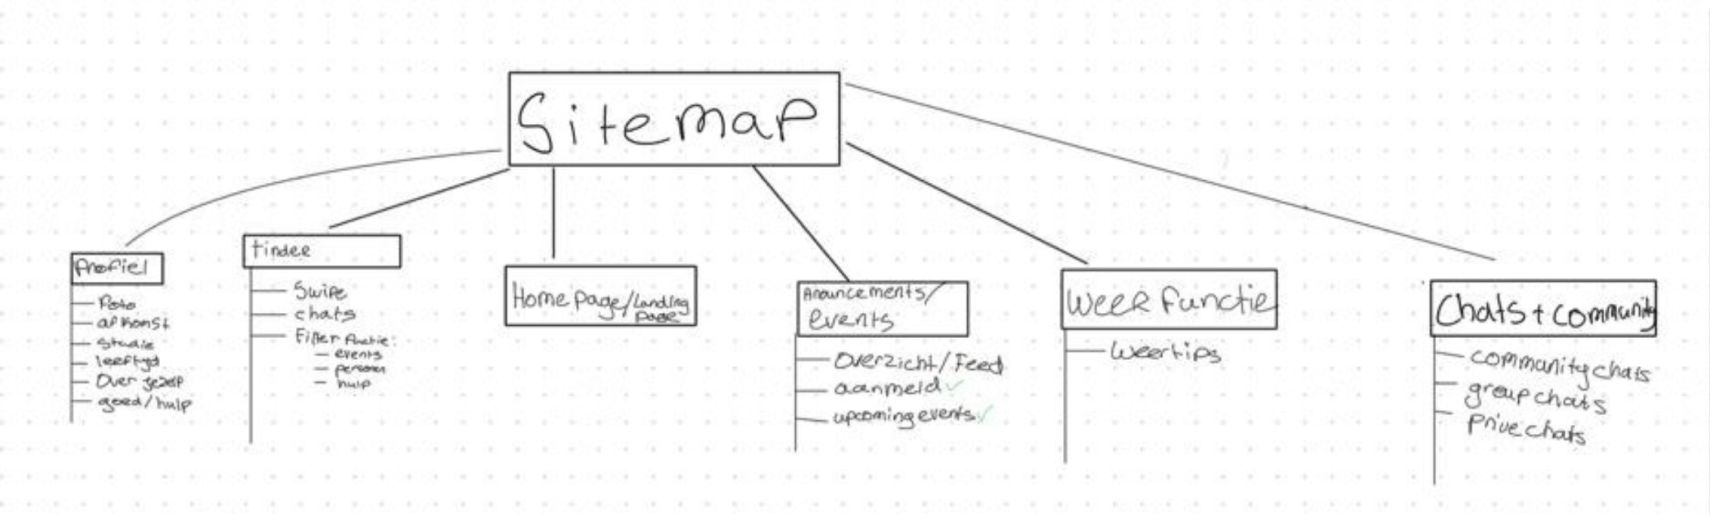 Sitemap
Profiel
Foto
afkomst
studie
leeftyd
Over jezelf
goed/hulp
tinder
Swipe
chats
Filter functie:
events
personen
hulp
Home page/Landing
page
Anouncements/
events
Overzicht/Feed
aanmeld ✓
upcoming events ✓
Weer functie
weertips
Chats + community
community chats
group chats
prive chats